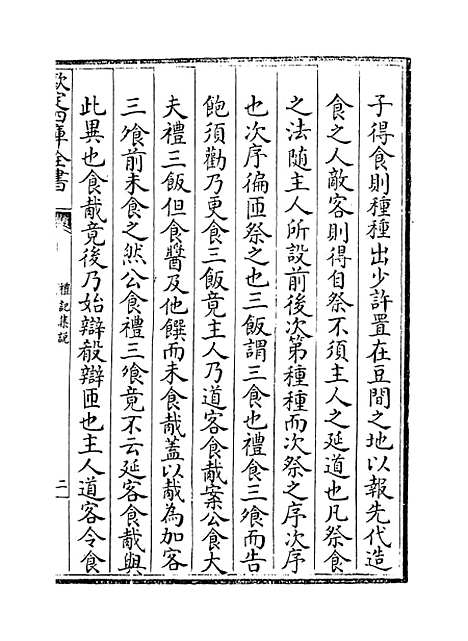 子得食則種種出少許置在豆間之地以報先代造
食之人敵客則得自祭不須主人之延道也凡祭食
之法隨主人所設前後次第種種而次祭之序次序
也次序徧匝祭之也三飯謂三食也禮食三飱而告
飽須勸乃更食三飯竟主人乃道客食胾案公食大
夫禮三飯但食醬及他饌而未食胾蓋以胾為加客
三飱前未食之然公食禮三飱竟不云延客食胾與
此異也食胾竟後乃始辯殽辯匝也主人道客令食
欽定四庫全書
禮記集說
二